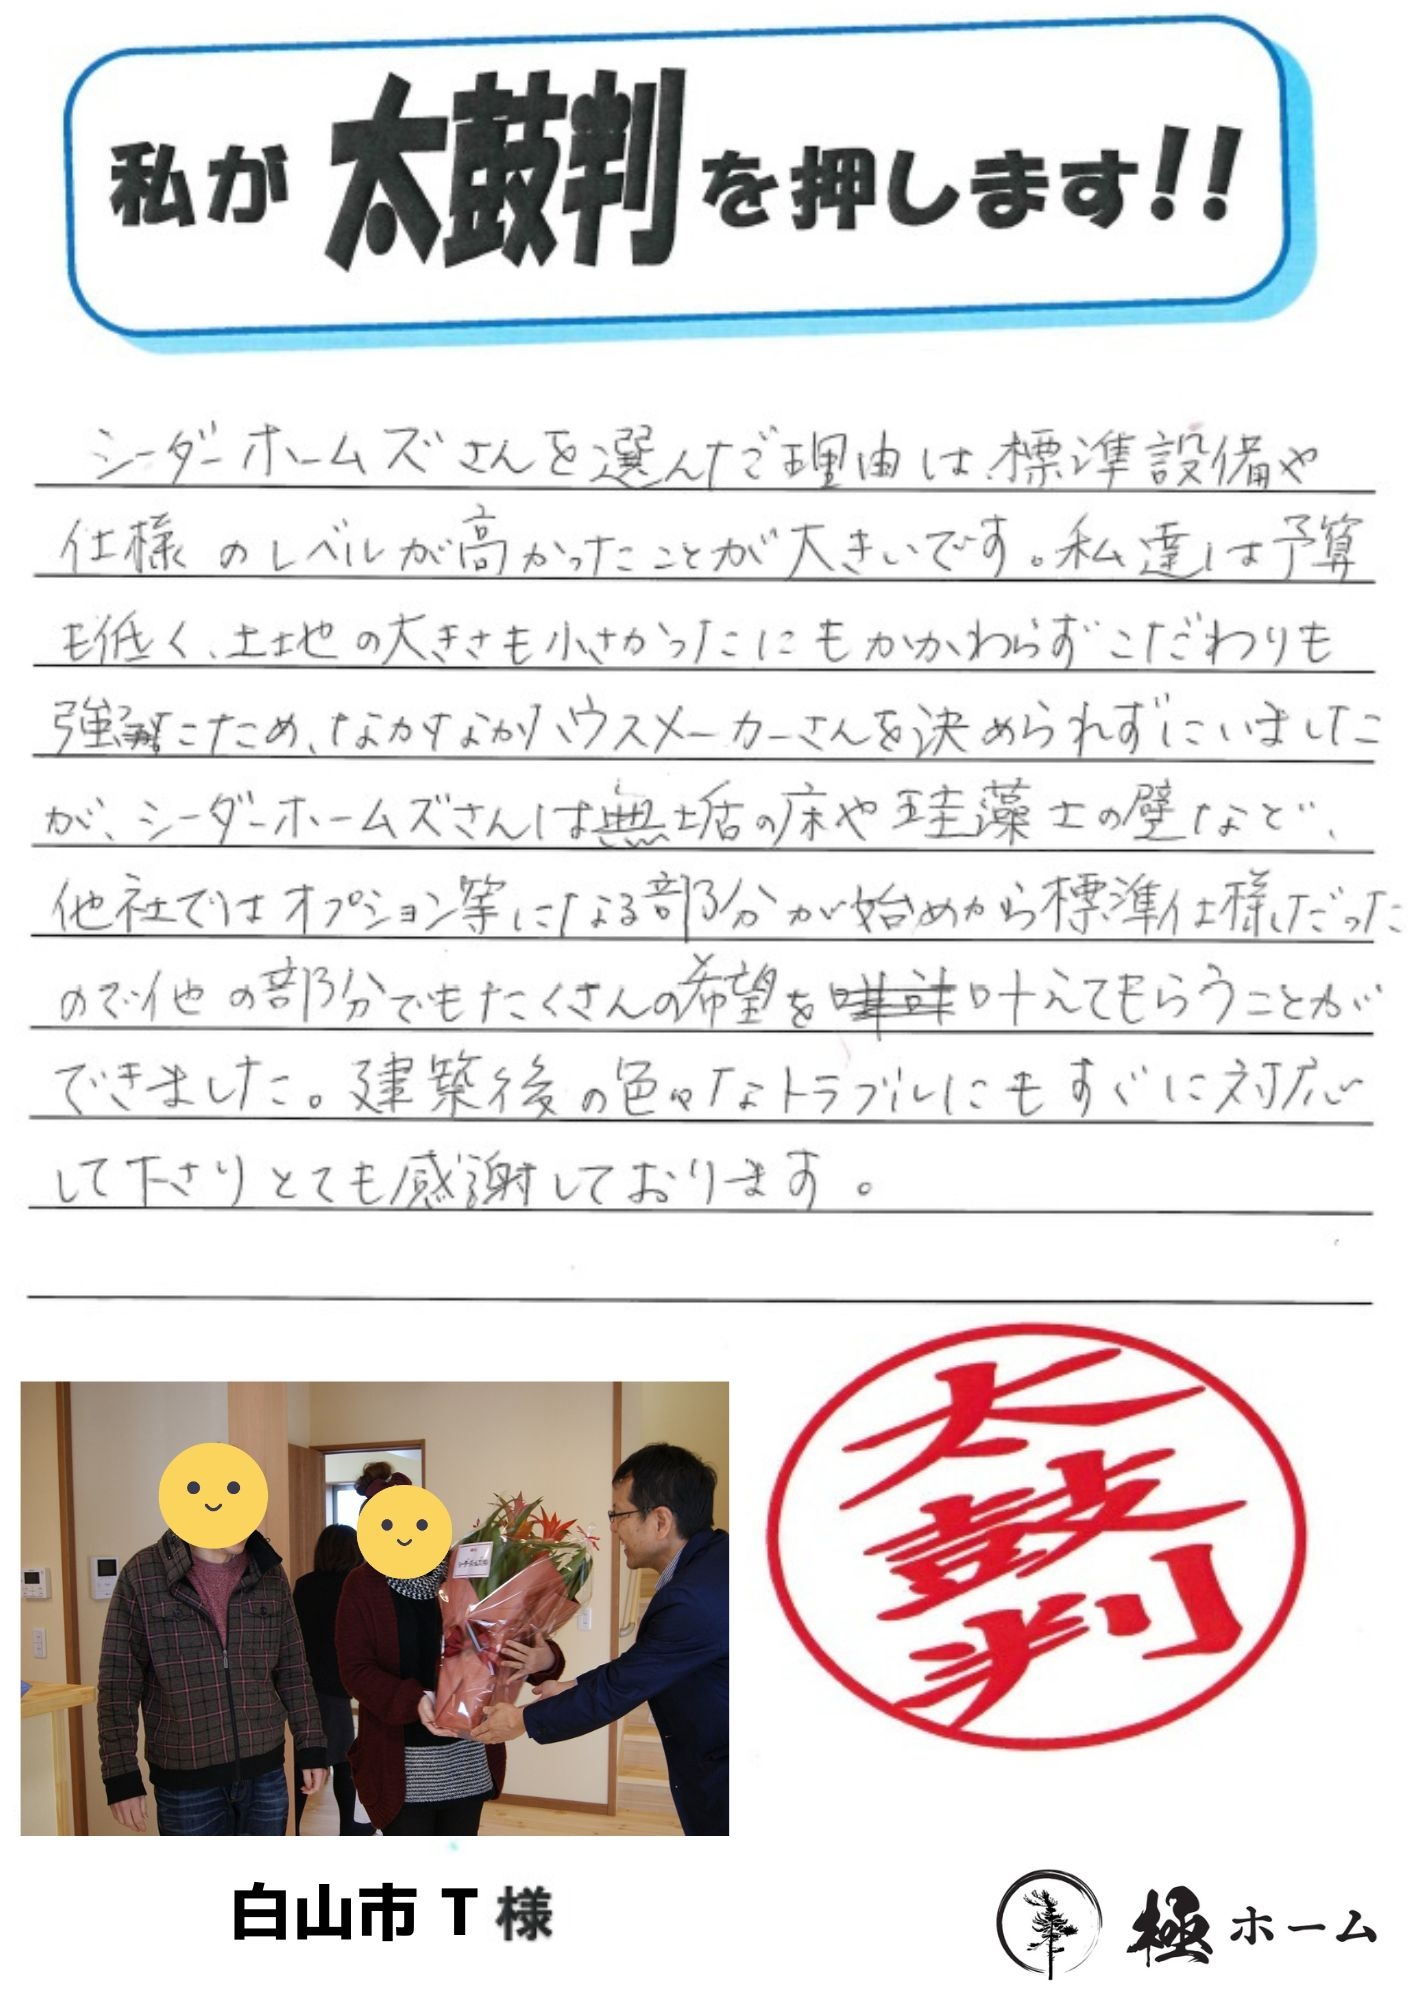 私が太鼓判を押します!!
シーダーホームズさんを選んだ理由は、標準設備や
仕様のレベルが高かったことが大きいです。私達は予算
も低く、土地の大きさも小さかったにもかかわらずこだわりも
強かったため、なかなかハウスメーカーさんを決められずにいました
が、シーダーホームズさんは無垢の床や珪藻土の壁など、
他社ではオプション等になる部分が始めから標準仕様だった
ので他の部分でもたくさんの希望を叶えてもらうことが
できました。建築後の色々なトラブルにもすぐに対応
して下さりとても感謝しております。
太鼓判
白山市 T 様
極ホーム